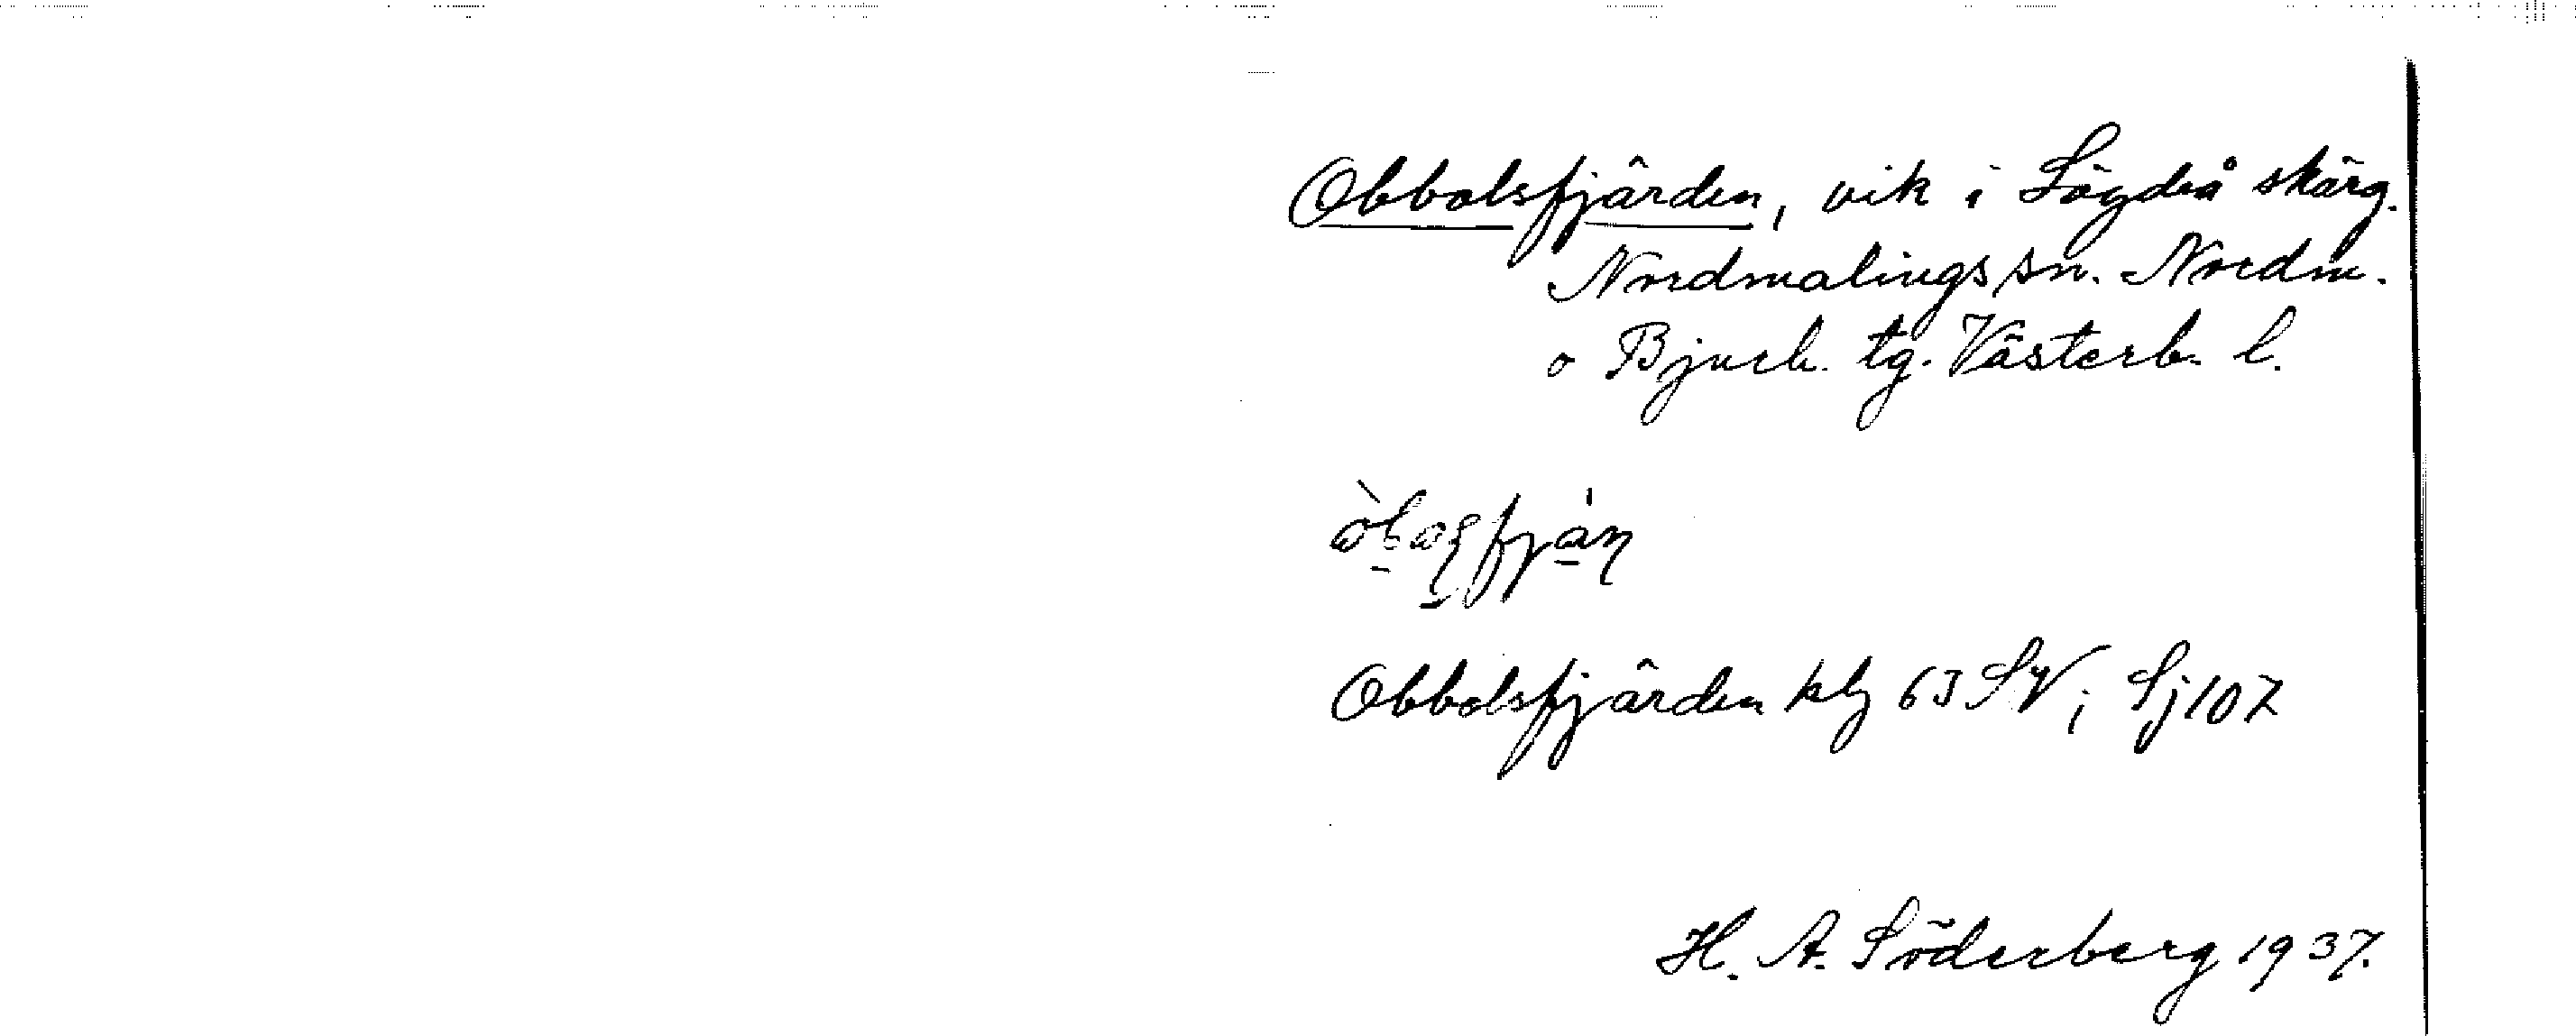 Obbolsfjärden, vik i Lögdeå skärg.
Nordmalings sn. Nordm.
o Bjurh. tg. Västerb. l.
Obbolsfjärden klj 63 SV; Sj 107
H. A. Söderberg 1937.